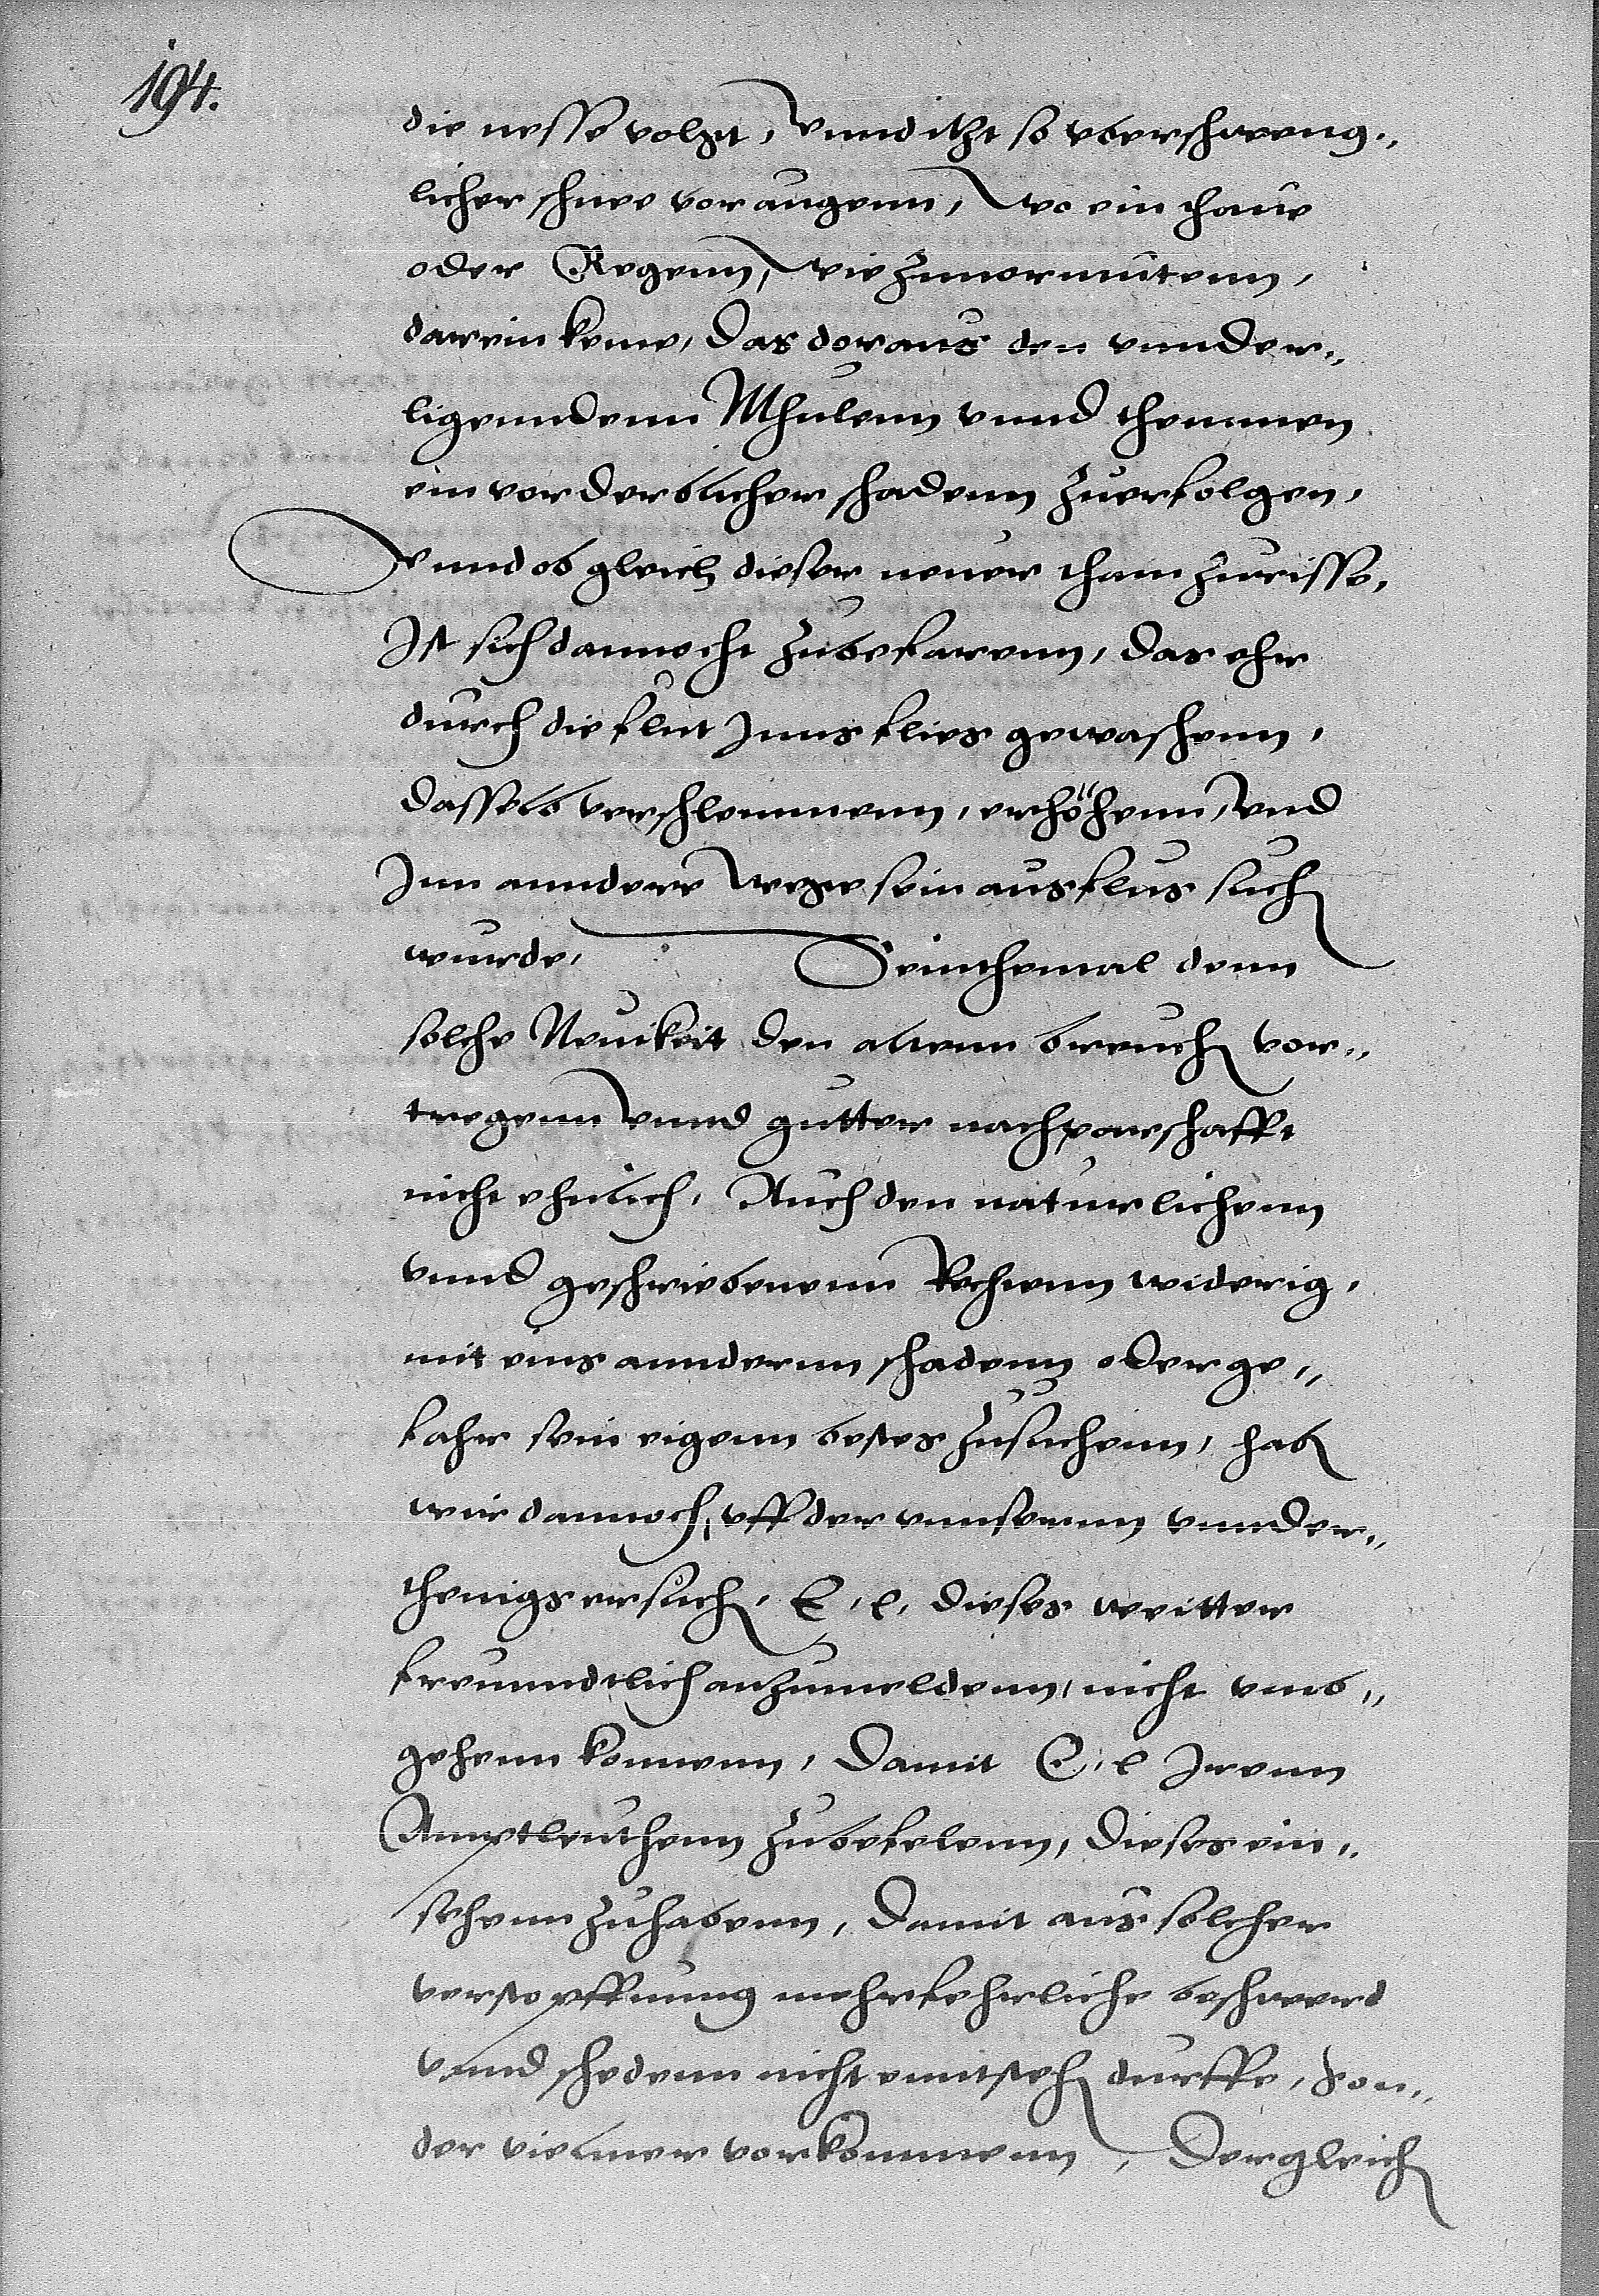 194.
die nesse volget, Vnnd itzt so vberschweng„
licher schnee vor augenn, Wo ein thaue
oder Regenn, wie zunormutenn,
darein keme, das doraus den vnnder„
ligenndenn Mhulenn vnnd themmen
ein vorderblicher schadenn zuerfolgen,
Vnnd ob gleich dieser neuer tham zurisse,
Ist sich dannocht zubefarenn, das ehr
durch die flut Inns flies gewaschenn,
dasselb verschlemmenn, erhöhenn, vnd
Inn anndere wege sein ausflus such
wurde, Seinthemal denn
solche Neuikeit den altenn breuch vor„
tregenn vnnd gutter nachparschafft
nicht ehnlich, Auch den naturlichenn
vnnd geschriebenenn Rechenn widerig,
mit eins annderm schadenn oder ge„
fahr sein eigenn bestes zusuchenn, hab
wir dannoch, vff der vnnserenn vnnder„
thenigs ersuch, E, l, dieses weitter
freunndtlich anzumeldenn, nicht vmb„
gehenn konnenn, Damit E, l Irenn
Amptleuthenn zubefelenn, dieses ein„
sehenn zuhabenn, Damit aus solcher
verstopffnung mehrfehrliche beschwerd
vnnd schedenn nicht enntsteh durffe, son„
der vielmer vorkommenn, Dergleich